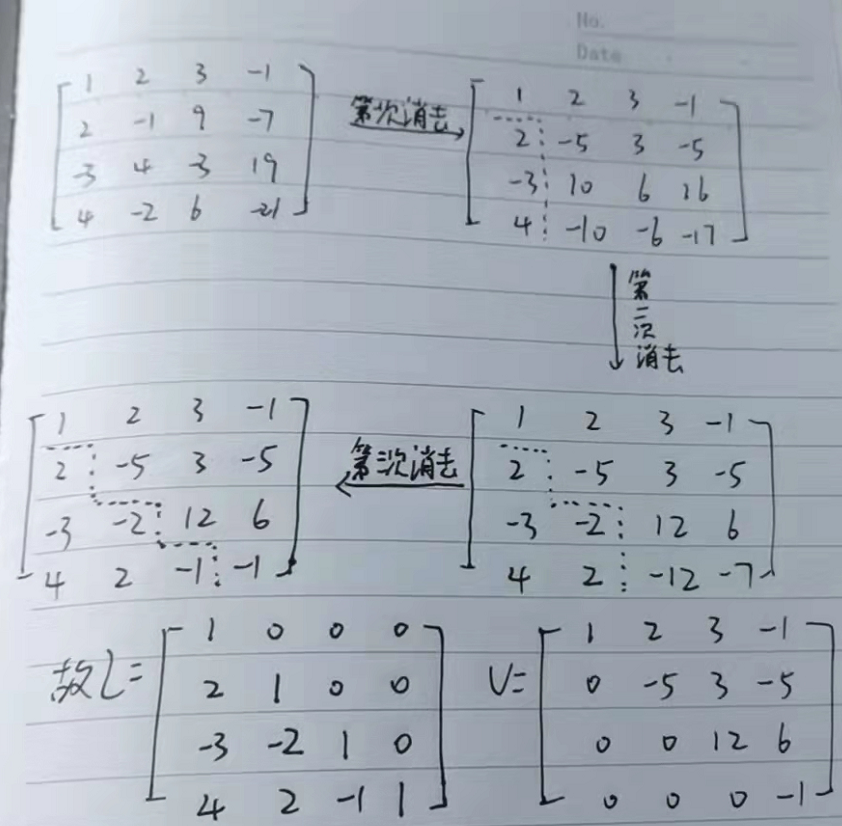 No.
Date
1 2 3 -1
2 -1 9 -7
-3 4 -3 19
4 -2 6 -21
第一次消去
1 2 3 -1
2 -5 3 -5
-3 10 6 16
4 -10 -6 -17
第二次消去
1 2 3 -1
2 -5 3 -5
-3 -2 12 6
4 2 -12 -7
第三次消去
1 2 3 -1
2 -5 3 -5
-3 -2 12 6
4 2 -1 -1
故L=
1 0 0 0
2 1 0 0
-3 -2 1 0
4 2 -1 1
U=
1 2 3 -1
0 -5 3 -5
0 0 12 6
0 0 0 -1